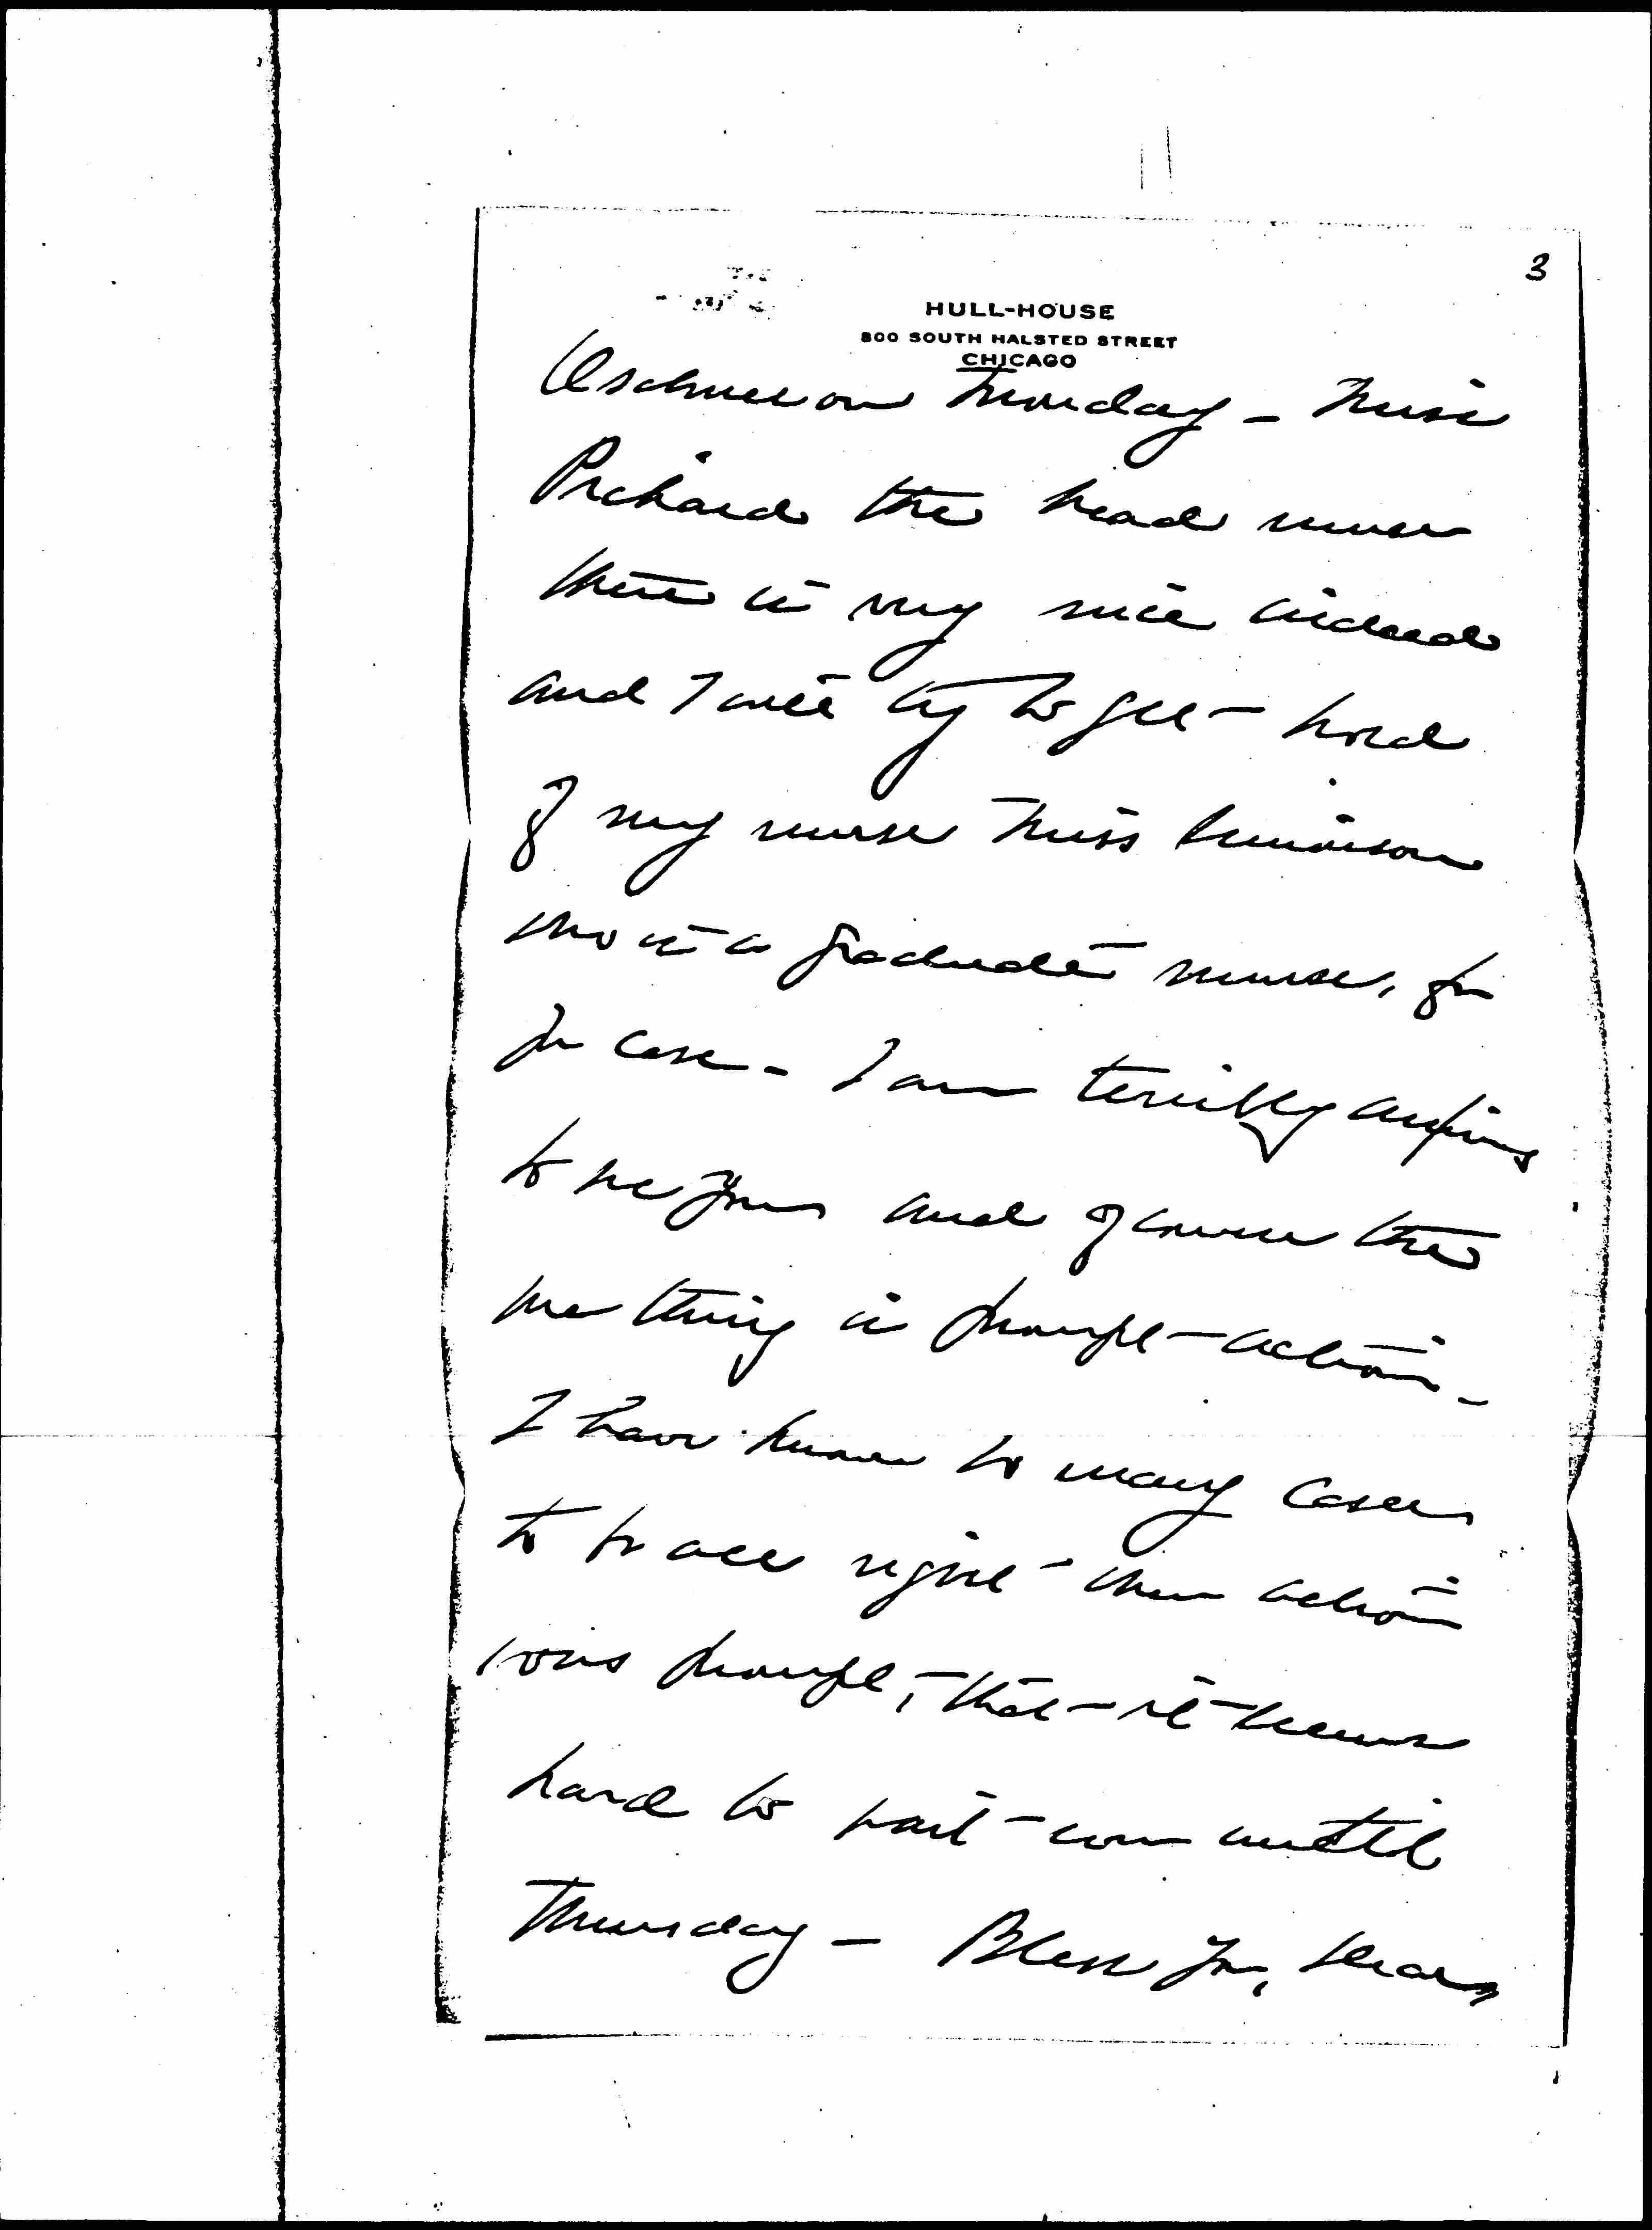 3
HULL-HOUSE
800 SOUTH HALSTED STREET
CHICAGO
on Monday - Miss
the head nurse
there is very nice indeed
and I will try to get hold
of my nurse Miss
who is a graduate nurse, for
yr case - I am terribly anxious
to see you and of course the
one thing is prompt action -
I have known so many cases
to be all right when action
was prompt, that it seems
hard to wait even until
Thursday - Bless you, dear,